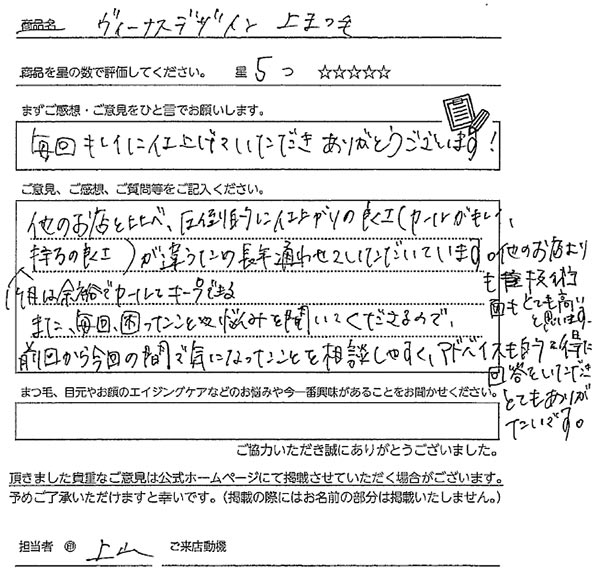 商品名 ヴィーナスデザイン 上まつ毛
商品を星の数で評価してください。 星 5 つ ☆☆☆☆☆
まずご感想・ご意見をひと言でお願いします。
毎回キレイに仕上げていただきありがとうございます!
ご意見、ご感想、ご質問等をご記入ください。
他のお店と比べ、圧倒的に仕上がりの良エ(カールがキレイ、
持ちの良エ)が違うため長年通わせていただいています。
1ヶ月は余裕でカールもキープできる
また、毎回、困ったことや悩みを聞いてくださるので、
前回から今回の間で気になったことを相談しやすく、アドバイスも
他のお店より
も 技術
面もとても高い
と思います。
回答をいただき
とてもありが
たいです。
まつ毛、目元やお顔のエイジングケアなどのお悩みや今一番興味があることをお聞かせください。
ご協力いただき誠にありがとうございました。
頂きました貴重なご意見は公式ホームページにて掲載させていただく場合がございます。
予めご了承いただけますと幸いです。(掲載の際にはお名前の部分は掲載いたしません。)
担当者 ㊞ 上山 ご来店動機